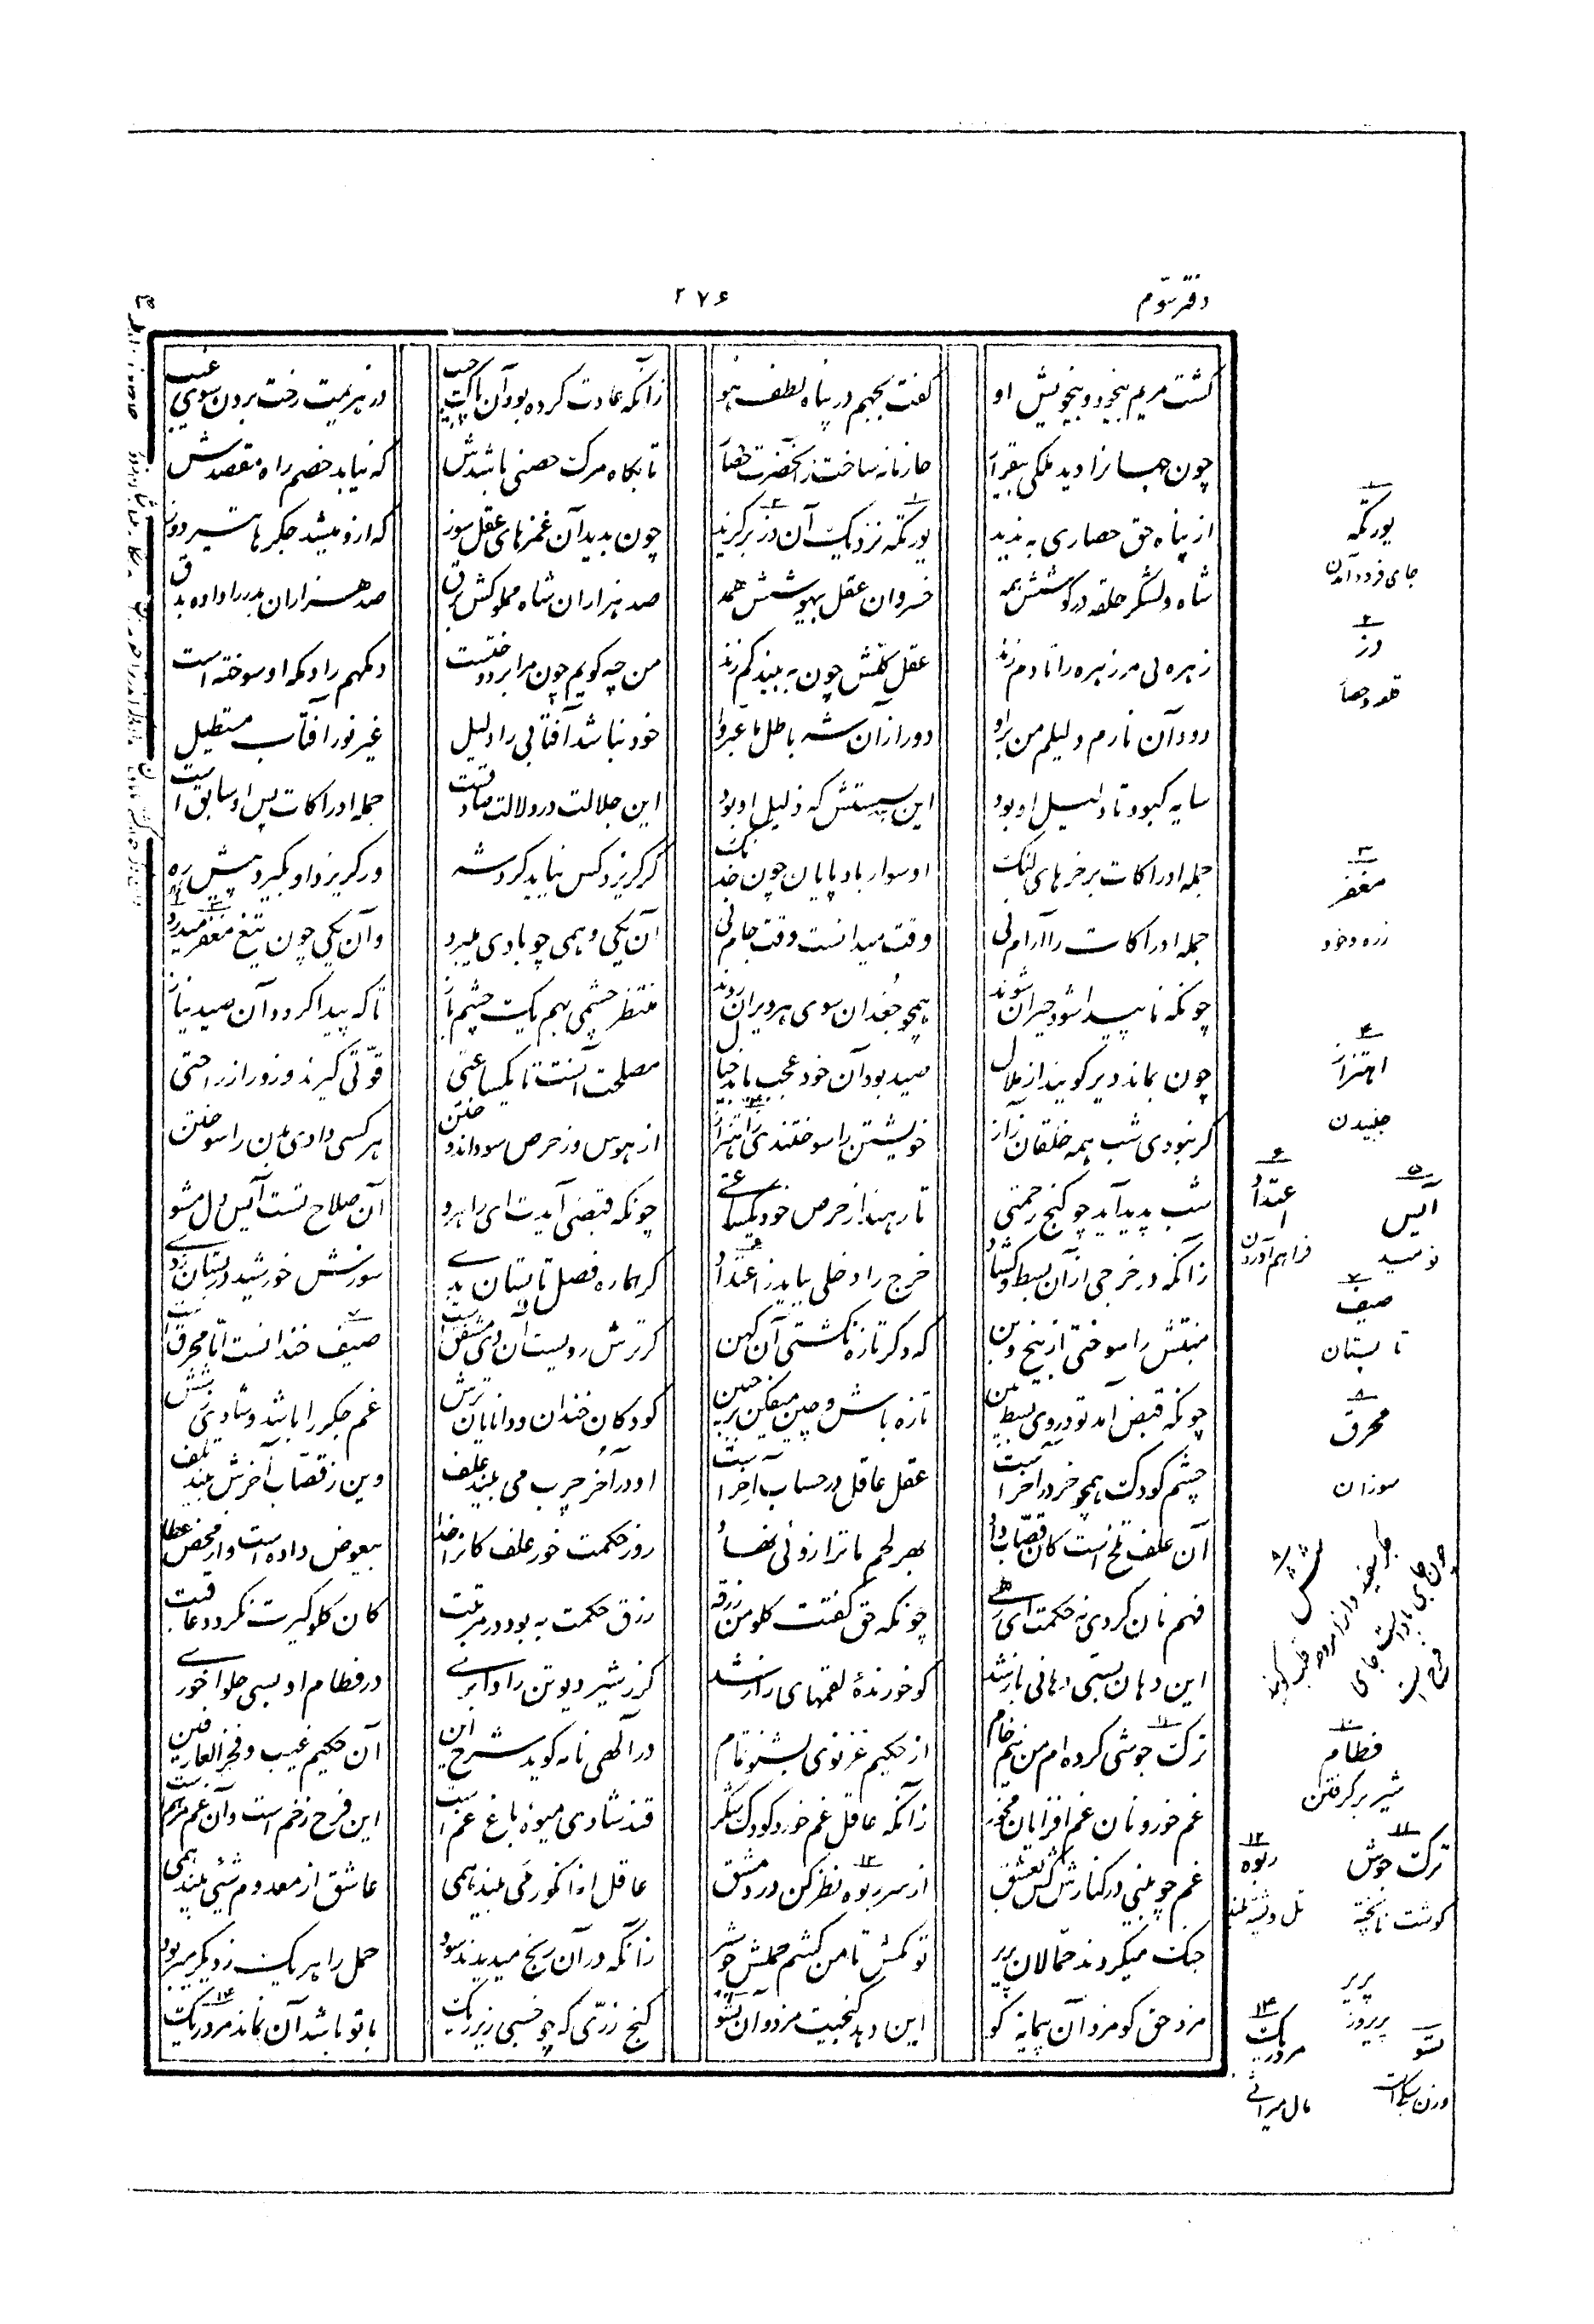 دفتر سوم
۲۷۶
گشت مریم بیخود و بیخویش او گفت بجهم در پناه لطف هو زانکه عادت کرده بود آن پاک جیب در هزیمت رخت بردن سوی غیب
چون جهانرا دید ملکی بیقرار حازمانه ساخت زآنحضرت حصار تا بگاه مرگ حصنی باشدش که نیابد خصم راه مقصدش
از پناه حق حصاری به ندید یورتگه نزدیک آن دز برگزید چون بدید آن غمزهای عقل سوز که ازو میشد جگرها تیر دوز
شاه و لشگر حلقه در گوشش همه خسروان عقل بیهوشش همه صد هزاران شاه مملوکش برق صد هزاران بدر را داده بدق
زهره نی مر زهره را تا دم زند عقل کلش چون به بیند کم زند من چه گویم چون مرا بر دوختست دمگهم را دمگه او سوخته است
دود آن نارم دلیلم من براو دور از آن شه باطل ما عبروا خود نباشد آفتابی را دلیل غیر نور آفتاب مستطیل
سایه کبود تا دلیل او بود این بسستش که ذلیل او بود این جلالت در دلالت صادقست جمله ادراکات پس او سابق است
جمله ادراکات بر خرهای لنگ او سوار باد پایان چون خدنگ گر گریزد کس نیابد گرد شه ور گریزد او بگیرد پیش ره
جمله ادراکات را آرام نی وقت میدانست وقت جام نی آن یکی وهمی چو بادی میپرد وآن یکی چون تیغ مغفر میدرد
چونکه ناپیدا شود حیران شوند همچو جغدان سوی هر ویران روند منتظر چشمی بهم یک چشم باز تا که پیدا گردد آن صید نیاز
چون بماند دیر گویند از ملال صید بود آن خود عجب یا بد خیال مصلحت آنست تا یکساعتی قوتی گیرند و زور از راحتی
گر نبودی شب همه خلقان ز آز خویشتن را سوختندی ز اهتزاز از هوس وز حرص سود اندوختن هر کسی دادی بدن را سوختن
شب پدید آید چو گنج رحمتی تا رهند از حرص خود یکساعتی چونکه قبضی آیدت ای راهرو آن صلاح تست آیس دل مشو
زانکه در خرجی از آن بسط و گشاد خرج را دخلی بباید ز اعتداد گر هماره فصل تابستان بدی سوزش خورشید در بستان زدی
منبتش را سوختی از بیخ و بن که دگر تازه نگشتی آن کهن گر ترش رویست آن دی مشفق است صیف خندانست اما محرق است
چونکه قبض آمد تو در وی بسط بین تازه باش و چین میفکن بر جبین کودکان خندان و دانایان ترش غم جگر را باشد و شادی ز شش
چشم کودک همچو خر در آخر است عقل عاقل در حساب آخر است او در آخر چرب می بیند علف وین ز قصاب آخرش بیند تلف
آن علف تلخ است کان قصاب داد بهر لحم ما ترازوئی نهاد رو ز حکمت خور علف کانرا خدا بیعوض داده است و از محض عطا
فهم نان کردی نه حکمت ای رهی چونکه حق گفتت کلو من رزقه رزق حکمت به بود در مرتبت کان گلوگیرت نگردد عاقبت
این دهان بستی دهانی باز شد کو خورندهٔ لقمهای راز شد گر ز شیر دیو تن را وابری در فطام او بسی حلوا خوری
ترک جوشی کرده ام من نیم خام از حکیم غزنوی بشنو تمام در الهی نامه گوید شرح این آن حکیم غیب و فخر العارفین
غم خور و نان غم افزایان مخور زانکه عاقل غم خورد کودک شکر قند شادی میوهٔ باغ غم است این فرح زخم است وآن غم مرهم است
غم چو بینی در کنارش کش بعشق از سر ربوه نظر کن در دمشق عاقل از انگور می بیند همی عاشق از معدوم شیئی بیند همی
جنگ میکردند حمالان پریر تو مکش تا من کشم حملش چو شیر زانکه در آن رنج میدیدند سود حمل را هر یک ز دیگر میربود
مزد حق کو مزد آن بیمایه کو این دهد گنجیت مزد و آن تسو گنج زری که چو خسبی زیر ریگ با تو باشد آن نماند مردریگ
۱
یورتگه
جای فرود آمدن
۲
دز
قلعه و حصار
۳
مغفر
زره و خود
۴
اهتزاز
جنبیدن
۵
آیس
نومید
۶
اعتداد
فراهم آوردن
۷
صیف
تابستان
۸
محرق
سوزان
۹
شش
۱۰
فطام
شیر برگرفتن
۱۱
ترک جوش
گوشت نا پخته
۱۲
ربوه
تل و پشته بلند
پریر
پریروز
تسو
۱۴
مردریگ
مال میراثی